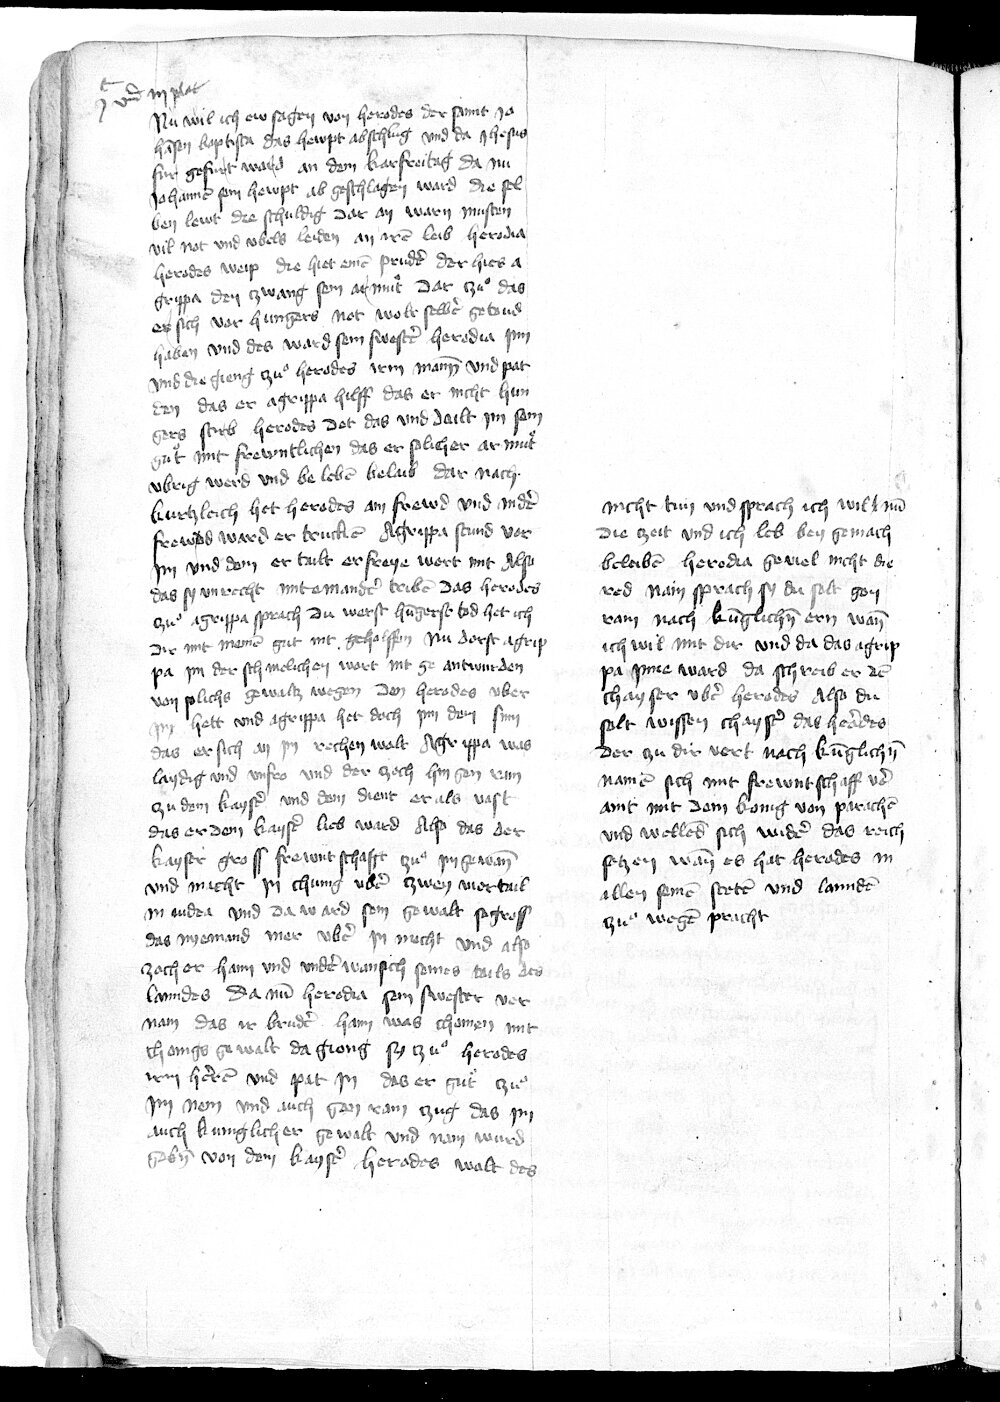 Nu wil ich ew sagen von herodes der sannt Jo
hãsen baptista das hewpt abschlug und da Jhesus
fur gefurt ward an dem karfreitag da nu
Johannẽ sein hewpt ab geschlagen ward die sel
ben lewt die schuldig dar an warn musten
vil not und vbels leiden an irẽ leib herodia
herodes weip die hiet einẽ prudẽr der hies a
grippa den czwang sein armut dar czuͦ das
er sich vor hungers not wolt selbẽr getoud
haben und des ward sein swestẽr herodia Inn
und die gieng czuͦ herodes irm mann und pat
den das er agrippa hilff das er nicht hun
gers sterb herodes det das und tailt im sein
guͤt mit frewntlichen das er solicher armut
vbrig werd und be lebẽ belaib dar nach
kurtzleich het herodes ain frewd und in dẽr
frewd ward er trunckẽ Agrippa stund vor
Im und dem er tailt er freye wort mit Also
das sy unrecht mit emandẽr tribẽ Das herodes
czuͦ agrippa sprach Du werst hũgerst tod het ich
dir mit meinẽ gut nit geholffen Nu derst agrip
pa im der schmelichen wort nit ge antwurden
von solichs gewaltz wegen den herodes vber
in hett und agrippa het doch im dem sinn
das er sich an in rechen wolt Agrippa was
laydig und unfro und der zoch hin gen ram
czu dem kaysẽr und dem dient er als vast
das er dem kaysẽr lieb ward Also das der
kayser gross frewntschafft czuͦ im gewan
und macht in chunig vbẽr czwen viertail
in iudea und da ward sein gewalt so gross
das nyemand mer vbẽr in mocht und also
zoch er haim und undẽr wan sich seines tails des
lanndes Da nũ herodia sein swester ver
nam das ir brudẽr haim was chomen mit
chonigs gewalt da gieng sy czuͦ herodes
irm herrẽ und pat in das er guͤt czuͦ
Im nem und auch gen ram czug das im
auch kunglicher gewalt und nam wurd
gebñ von dem kaysẽr herodes wolt des
nicht tun und sprach ich wil nũ
die zeit und ich leb bey gemach
beleibẽ herodia geviel nicht die
red Nain sprach sy du solt gen
ram nach kũglichñ ern wañ
ich wil mit dir und da das agrip
pa inne ward da schreib er dẽ
chayser vbẽr herodes Also du
solt wissen chaysẽr das herodes
der zu dir vert nach kũglichñ
namẽ sich mit frewntschaff vẽr
aint mit dem konig von parachẽ
und wellend sich widẽr das reich
seczen wañ es hat herodes in
allen seinẽ stetẽ und lanndẽ
czuͦ wegẽ pracht